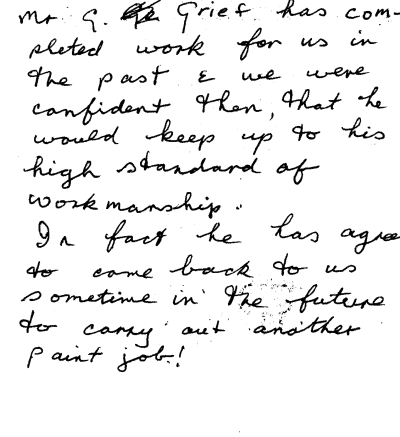 Mr G. Grief has com-
pleted work for us in
the past & we were
confident then, that he
would keep up to his
high standard of
workmanship.
In fact he has agree
to come back to us
sometime in the future
to carry out another
paint job!